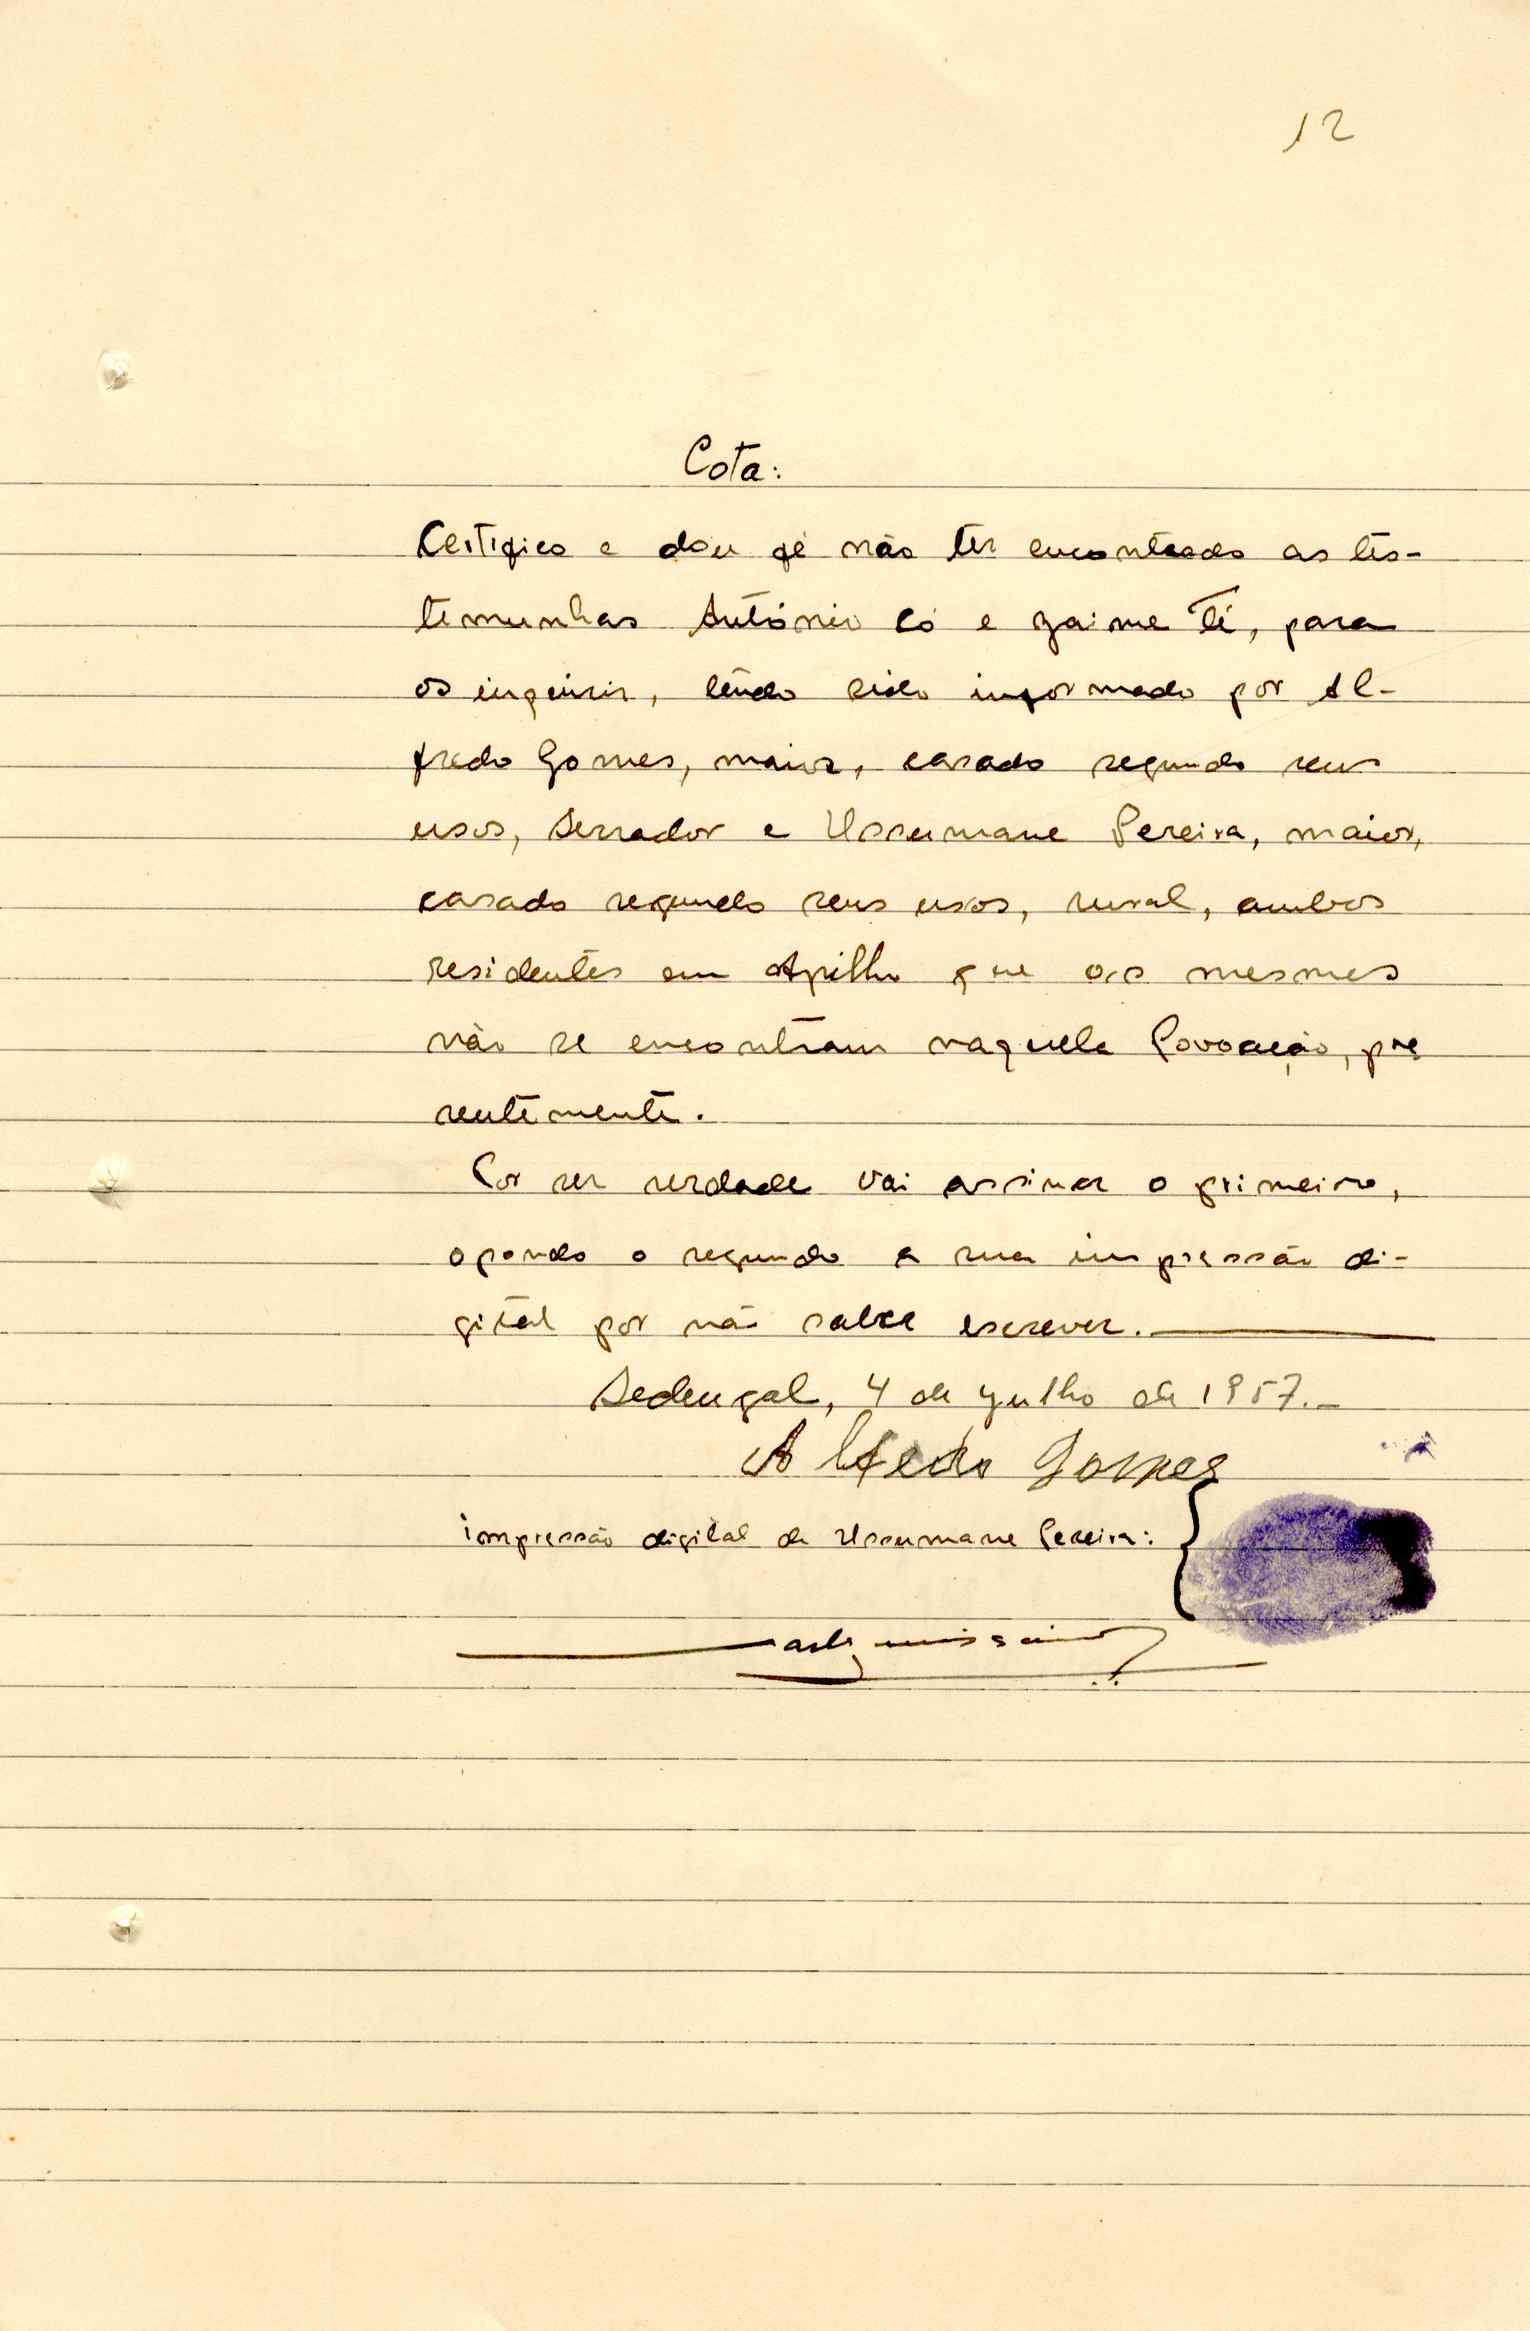 12
Cota:
Certifico e dou fé não ter encontrado as tes-
temunhas António Có e Jaime Té, para
os inquirir, tendo sido informado por Al-
fredo Gomes, maior, casado segundo seus
usos, Serrador e Ussumane Pereira, maior,
casado segundo seus usos, rural, ambos
residentes em Apilho que os mesmos
não se encontram naquela Povoação, pre
sentemente.
Por ser verdade vai assinar o primeiro,
opondo o segundo a sua impressão di-
gital por não saber escrever.
Sedengal, 4 de Julho de 1957.-
Alfedro Gomes
impressão digital de Ussumane Pereira: